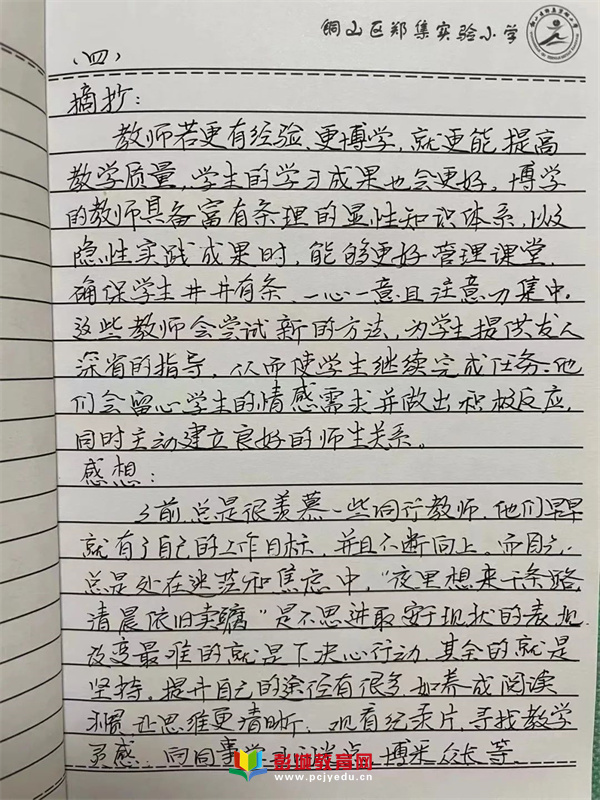 铜山区郑集实验小学
（四）
摘抄：
教师若更有经验、更博学，就更能提高
教学质量，学生的学习成果也会更好。博学
的教师具备富有条理的显性知识体系，以及
隐性实践成果时，能够更好管理课堂，
确保学生井井有条、一心一意且注意力集中。
这些教师会尝试新的方法，为学生提供发人
深省的指导，从而使学生继续完成任务：他
们会留心学生的情感需求并做出积极反应，
同时主动建立良好的师生关系。
感想：
之前总是很羡慕一些同行教师，他们早早
就有了自己的工作目标，并且不断向上。而自己
总是处在迷茫和焦虑中，“夜里想来千条路，
清晨依旧卖”是不思进取安于现状的表现。
改变最难的就是下决心行动，其余的就是
坚持。提升自己的途径有很多，如养成阅读
习惯让思维更清晰；观看纪录片，寻找教学
灵感；向同事学习，博采众长等。
彭城教育网
www.pcjyedu.cn